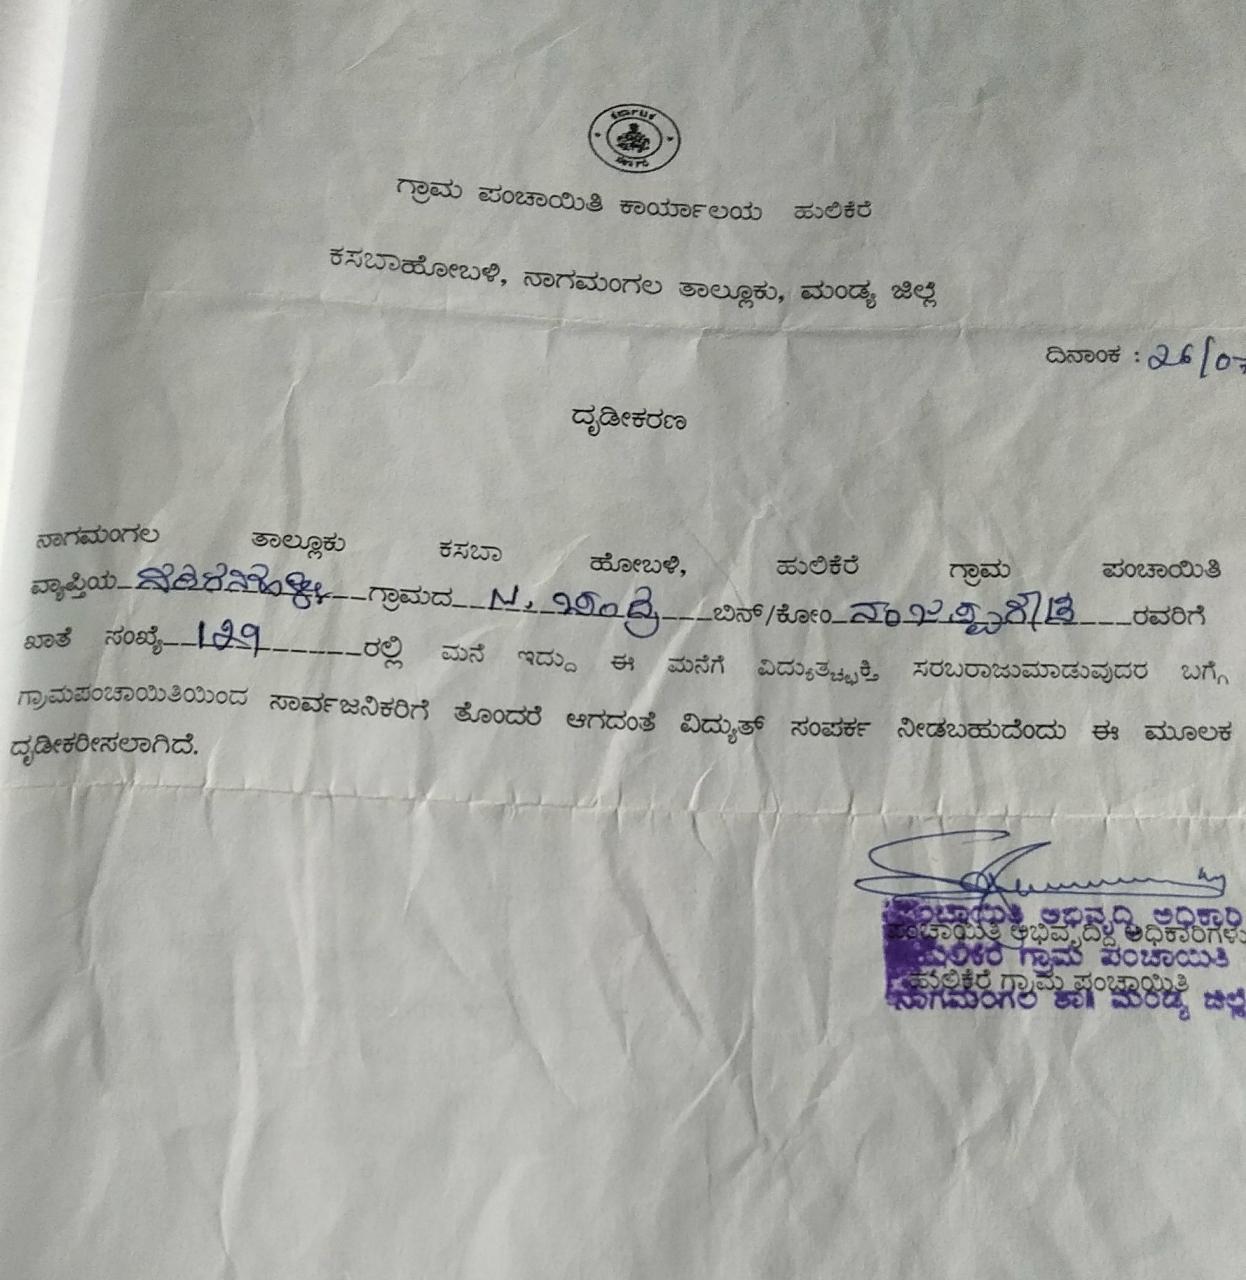 ಕರ್ನಾಟಕ
ಗ್ರಾಮ ಪಂಚಾಯಿತಿ ಕಾರ್ಯಾಲಯ ಹುಲಿಕೆರೆ
ಕಸಬಾಹೋಬಳಿ, ನಾಗಮಂಗಲ ತಾಲ್ಲೂಕು, ಮಂಡ್ಯ ಜಿಲ್ಲೆ
ದಿನಾಂಕ : 26/07
ದೃಡೀಕರಣ
ನಾಗಮಂಗಲ ತಾಲ್ಲೂಕು ಕಸಬಾ ಹೋಬಳಿ, ಹುಲಿಕೆರೆ ಗ್ರಾಮ ಪಂಚಾಯಿತಿ
ವ್ಯಾಪ್ತಿಯ ಗ್ರಾಮದ ಬಿನ್/ಕೋಂ ರವರಿಗೆ
ಖಾತೆ ಸಂಖ್ಯೆ ರಲ್ಲಿ ಮನೆ ಇದ್ದು ಈ ಮನೆಗೆ ವಿದ್ಯುತ್ಚ್ಛಕ್ತಿ ಸರಬರಾಜುಮಾಡುವುದರ ಬಗ್ಗೆ
ಗ್ರಾಮಪಂಚಾಯಿತಿಯಿಂದ ಸಾರ್ವಜನಿಕರಿಗೆ ತೊಂದರೆ ಆಗದಂತೆ ವಿದ್ಯುತ್ ಸಂಪರ್ಕ ನೀಡಬಹುದೆಂದು ಈ ಮೂಲಕ
ದೃಡೀಕರೀಸಲಾಗಿದೆ.
ಪಂಚಾಯಿತಿ ಅಭಿವೃದ್ಧಿ ಅಧಿಕಾರಿ
ಪಂಚಾಯಿತಿ ಅಭಿವೃದ್ದಿ ಅಧಿಕಾರಿಗಳು
ಹುಲಿಕೆರೆ ಗ್ರಾಮ ಪಂಚಾಯಿತಿ
ಹುಲಿಕೆರೆ ಗ್ರಾಮ ಪಂಚಾಯಿತಿ
ನಾಗಮಂಗಲ ತಾ॥ ಮಂಡ್ಯ ಜಿಲ್ಲೆ